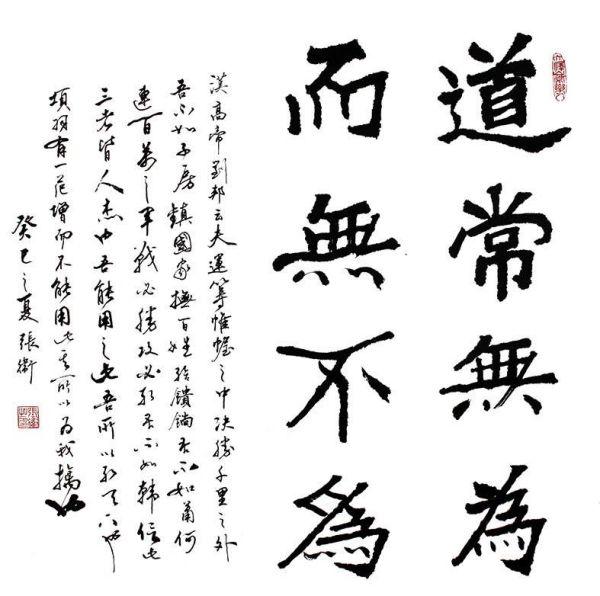 道常無為
而無不為
漢高帝劉邦云夫運籌帷幄之中决勝千里之外
吾不如子房鎮國家撫百姓給饋餉吾不如蕭何
連百萬之軍戰必勝攻必取吾不如韓信此
三者皆人杰也吾能用之此吾所以取天下也
項羽有一范增而不能用此其所以为我擒也
癸巳之夏張衛